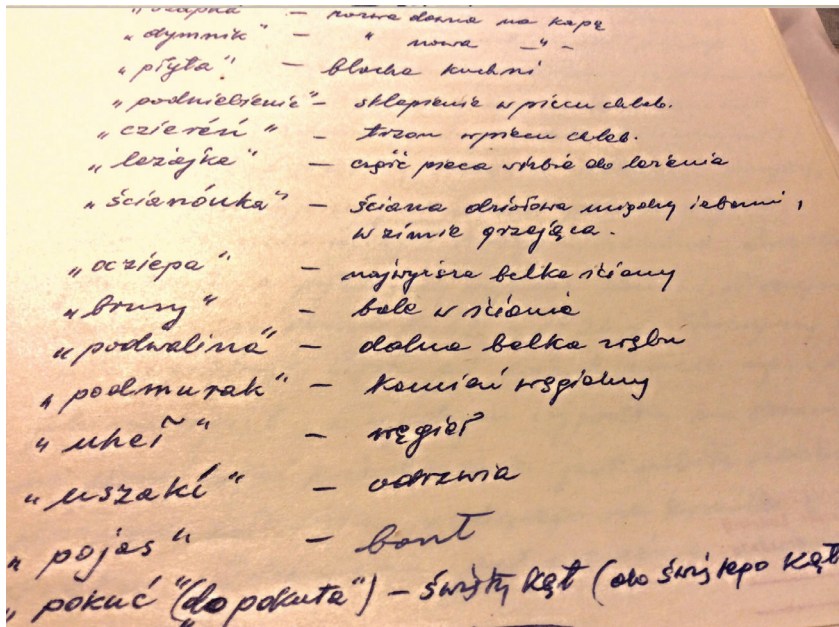 – nazwa dawna na kapę
„dymnik" – " nowa –"–
„płyta" – blacha kuchni
„podniebienie" – sklepienie w piecu chleb.
„czereń" – trzon w piecu chleb.
„leżajka" – część pieca w izbie do leżenia
„ścianówka" – ściana działowa między izbami,
w zimie grzejąca.
„ocziepa" – najwyższa belka ściany
„brusy" – bale w ścianie
„podwalina" – dolna belka zrębu
„podmurak" – kamień węgielny
„uheł" – węgieł
„uszaki" – odrzwia
„pojas" – bant
„pokuć" („do pokuta") – święty kąt (do świętego kąt